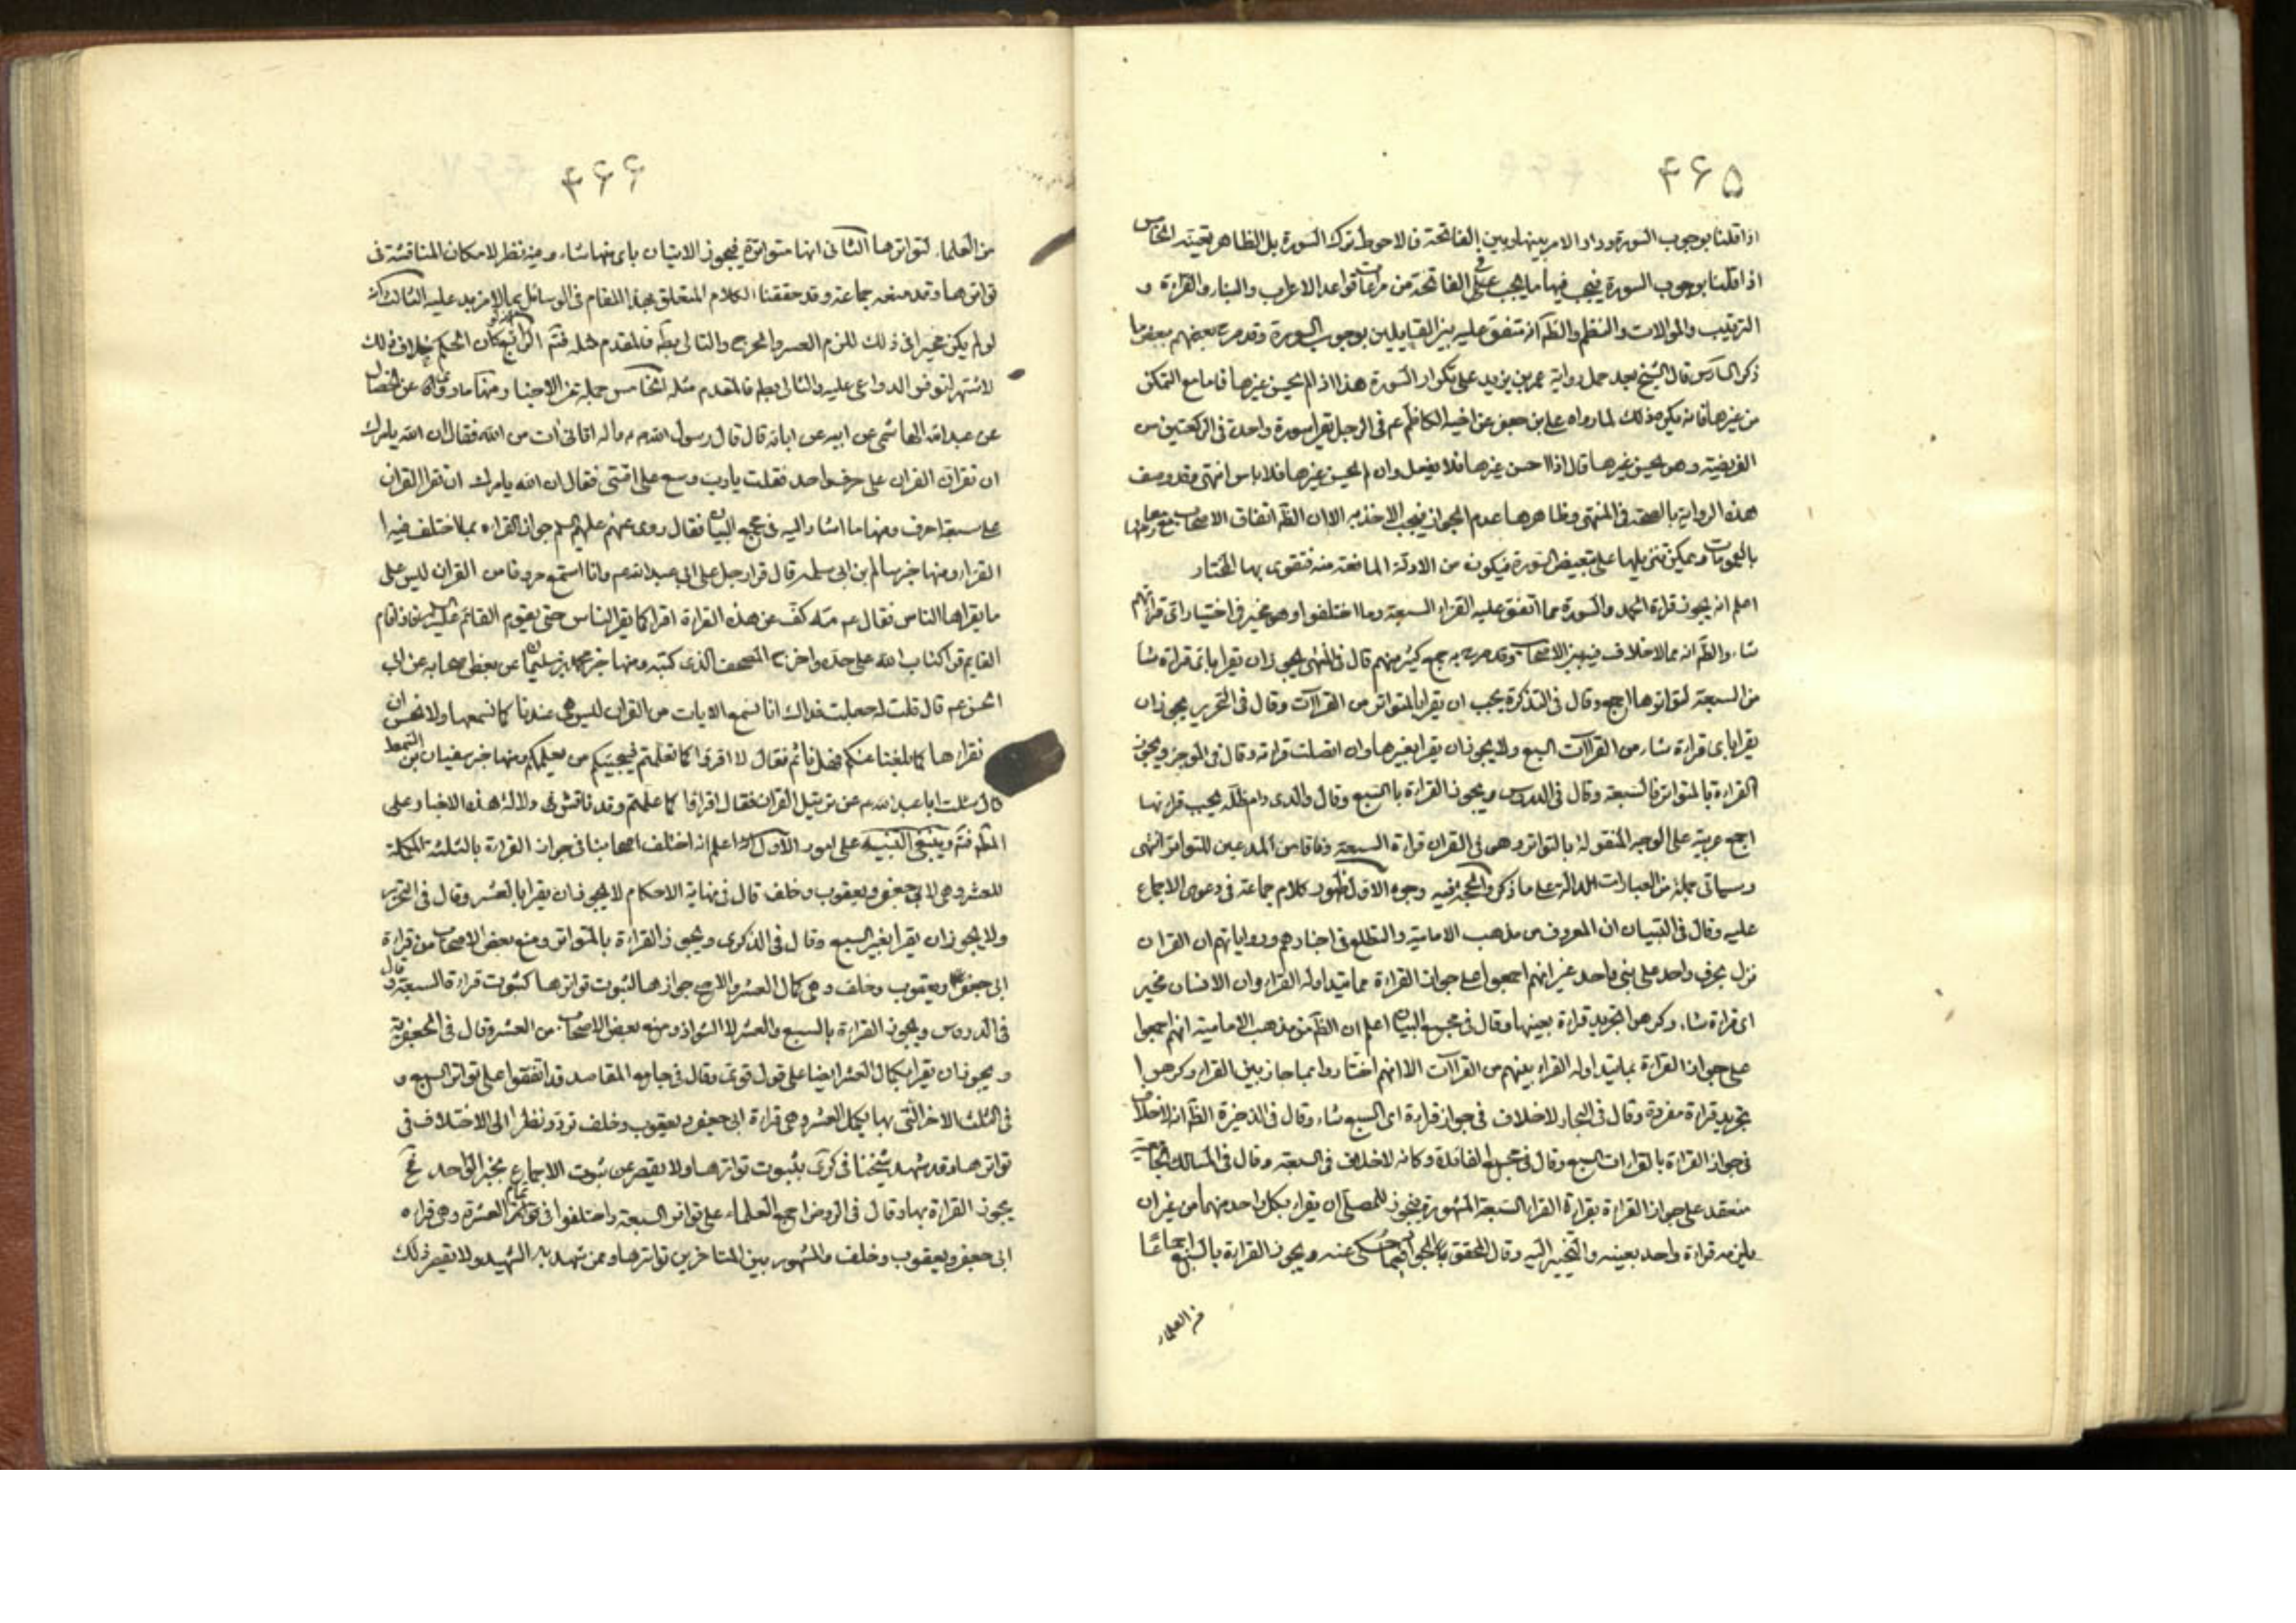 ۴۶۵
اذا قلنا بوجوب السورة ودار الامر بينها وبين الفاتحة فالاحوط ترك السورة بل الظاهر تعينه الخامس
اذا قلنا بوجوب السورة فيجب فيها ما يجب في الفاتحة من مراعات قواعد الاعراب والبناء والقراءة و
الترتيب والموالات والنظم والظ انه متفق عليه بين القايلين بوجوب السورة وقد صرح بعضهم ببعض ما
ذكر السادس قال الشيخ بعد حمل رواية عمر بن يزيد على تكرار السورة هذا اذا لم يحسن غيرها فاما مع التمكن
من غيرها فانه يكره ذلك لما رواه علي بن جعفر عن اخيه الكاظم عم في الرجل يقرأ سورة واحدة في الركعتين من
الفريضة وهو يحسن غيرها قال اذا احسن غيرها فلا يفعل وان لم يحسن غيرها فلا باس انتهى وقد وصف
هذه الرواية بالصحة في المنتهى وظاهرها عدم الجواز فيجب الاخذ به الا ان الظ اتفاق الاصحاب
بالعمومات ويمكن تنزيلها على تبعيض السورة فيكون من الادلة المانعة منه فتقوى بها المختار
اعلم انه يجوز قراءة الحمد والسورة مما اتفق عليه القراء السبعة وما اختلفوا وهو مخير في اختيار اي قرائتهم
شاء والظ انه مما لا خلاف فيه بين الاصحاب وقد صرح به جمع كثير منهم قال في المنتهى يجوز ان يقرأ باي قراءة شاء
من السبعة لتواترها اجمع وقال في التذكرة يجب ان يقرأ بالمتواتر من القراآت وقال في التحرير يجوز ان
يقرأ باي قراءة شاء من القراآت السبع ولا يجوز ان يقرأ بغيرها وان اتصلت قرائة وقال في الموجز ويجوز
القراءة بالمتواتر فالسبعة وقال في الدروس ويجوز القراءة بالسبع وقال والدي دام ظله يجب قرائتها
اجمع عربية على الوجه المنقولة بالتواتر وهو في القران قراءة السبعة وفاقا من المدعين للتواتر انتهى
وسياتي جملة من العبارات الدالة على ما ذكر والحجة فيه وجوه الاول ظهور كلام جماعة في دعوى الاجماع
عليه وقال في التبيان ان المعروف من مذهب الامامية والتطلع في اخبارهم ورواياتهم ان القران
نزل بحرف واحد على نبي واحد غير انهم اجمعوا على جواز القراءة بما يتداوله القراء وان الانسان مخير
اي قراءة شاء وكرهوا تجريد قراءة بعينها وقال في مجمع البيان اعلم ان الظ من مذهب الامامية انهم اجمعوا
على جواز القراءة بما يتداوله القراء بينهم من القراآت الا انهم اختاروا بما جاز بين القراء وكرهوا
تجريد قراءة مفردة وقال في البحار لا خلاف في جواز قراءة اي السبع شاء وقال في الذخيرة الظ انه لا خلاف
في جواز القراءة بالقراءات السبع وقال في مجمع الفائدة وكانه لا خلاف في السبعة وقال في المسالك الجامعية
منعقد على جواز القراءة بقراءة القراء السبعة المشهورة فيجوز للمصلي ان يقراء بكل واحد منهما من غير ان
يلزمه قراءة واحد بعينه والتخيير اليه وقال المحقق حكى عنه ويجوز القراءة بالسبع اجماعا
من العلماء
۴۶۶
من العلماء لتواترها الثاني انها متواترة فيجوز الاتيان باي منها شاء وفيه نظر لامكان المناقشة في
تواترها وقد منعه جماعة وقد حققنا الكلام المتعلق بهذا المقام في الوسائل بما لا مزيد عليه الثالث انه
لو لم يكن مخيرا في ذلك للزم العسر والحرج والتالي بط فالمقدم مثله فتم الرابع كان الحكم خلاف ذلك
لاشتهر لتوفر الدواعي عليه والتالي بط فالمقدم مثله الخامس جملة من الاخبار منها ما روي عن الخصال
عن عبد الله الهاشمي عن ابيه عن ابائه قال قال رسول الله ص واله اتاني ات من الله فقال ان الله يامرك
ان تقرأ القران على حرف واحد فقلت يا رب وسع على امتي فقال ان الله يامرك ان تقرأ القران
على سبعة احرف ومنها ما اشار اليه في مجمع البيان فقال روى عنهم عليهم السلم جواز القراءه بما اختلف فيه ا
لقراء ومنها خبر سالم بن ابي سلمة قال قرأ رجل على ابي عبد الله عم وانا استمع حروفا من القران ليس على
ما يقراها الناس فقال عم مه كف عن هذه القراءة اقرأ كما يقرأ الناس حتى يقوم القائم فاذا قام
القايم قرأ كتاب الله على حده واخرج المصحف الذي كتبه ومنها خبر محمد بن سليمان عن بعض اصحابه عن ابي
الحسن عم قال قلت له جعلت فداك انا نسمع الايات من القران ليس هي عندنا كما نسمعها ولا نحسن ان
نقراها كما بلغنا عنكم فهل ناثم فقال لا اقرؤا كما تعلمتم فيجيئكم من يعلمكم ومنها خبر سفيان بن السمط
قال سئلت ابا عبد الله عم عن تنزيل القران فقال اقراؤا كما علمتم وقد ناقش في دلالة هذه الاخبار على
المط فتم وينبغي التنبيه على امور الاول اعلم انه اختلف اصحابنا في جواز القراءة بالثلثة المكملة
للعشر وهي لابي جعفر ويعقوب وخلف قال في نهاية الاحكام لا يجوز ان يقرأ بالعشر وقال في التحرير
ولا يجوز ان يقرأ بغير السبع وقال في الذكرى ويجوز القراءة بالمتواتر ومنع بعض الاصحاب من قراءة
ابي جعفر ويعقوب وخلف وهي كمال العشر والاصح جوازها لثبوت تواترها كثبوت قراءة السبعة وقال
في الدروس ويجوز القراءة بالسبع والعشر لا الشواذ ومنع بعض الاصحاب من العشر وقال في الجعفرية
ويجوز ان يقرأ بكمال العشر ايضا على قول قوي وقال في جامع المقاصد قد اتفقوا على تواتر السبع و
في الثلث الاخر التي بها يكمل العشر وهي قراءة ابي جعفر ويعقوب وخلف تردد ونظرا الى الاختلاف في
تواترها وقد شهد شيخنا في كرى بثبوت تواترها ولا يقصر عن ثبوت الاجماع بخبر الواحد فح
يجوز القراءة بها وقال في الروض اجمع العلماء على تواتر السبعة واختلفوا في تواتر تمام العشرة وهي قراءه
ابي جعفر ويعقوب وخلف والمشهور بين المتاخرين تواترها وممن شهد به الشهيد ولا يقصر ذلك